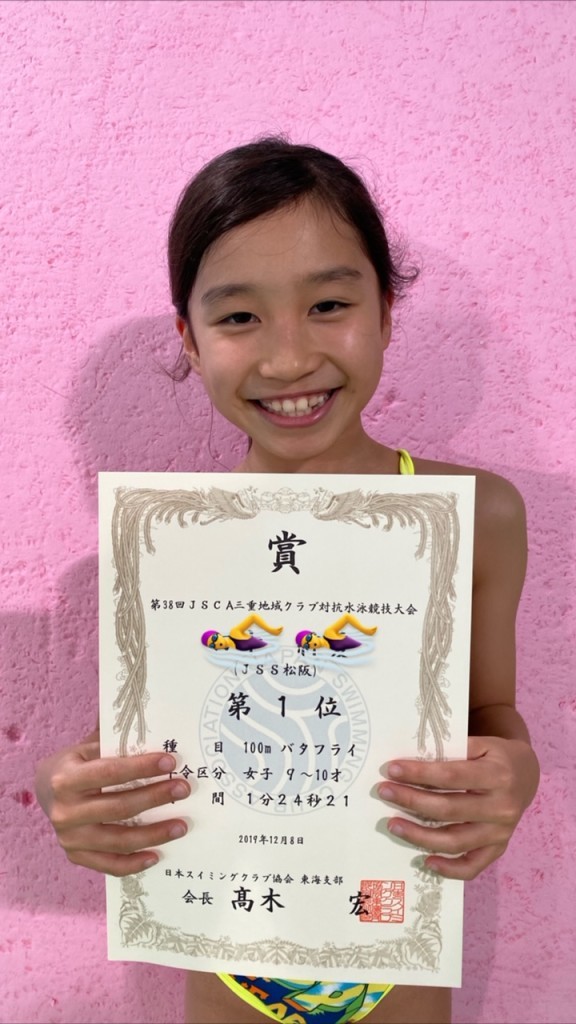 賞
第38回JSCA三重地域クラブ対抗水泳競技大会
(JSS松阪)
第 1 位
種 目 100m バタフライ
令区分 女子 9〜10才
間 1分24秒21
2019年12月8日
日本スイミングクラブ協会 東海支部
会長 髙木 宏